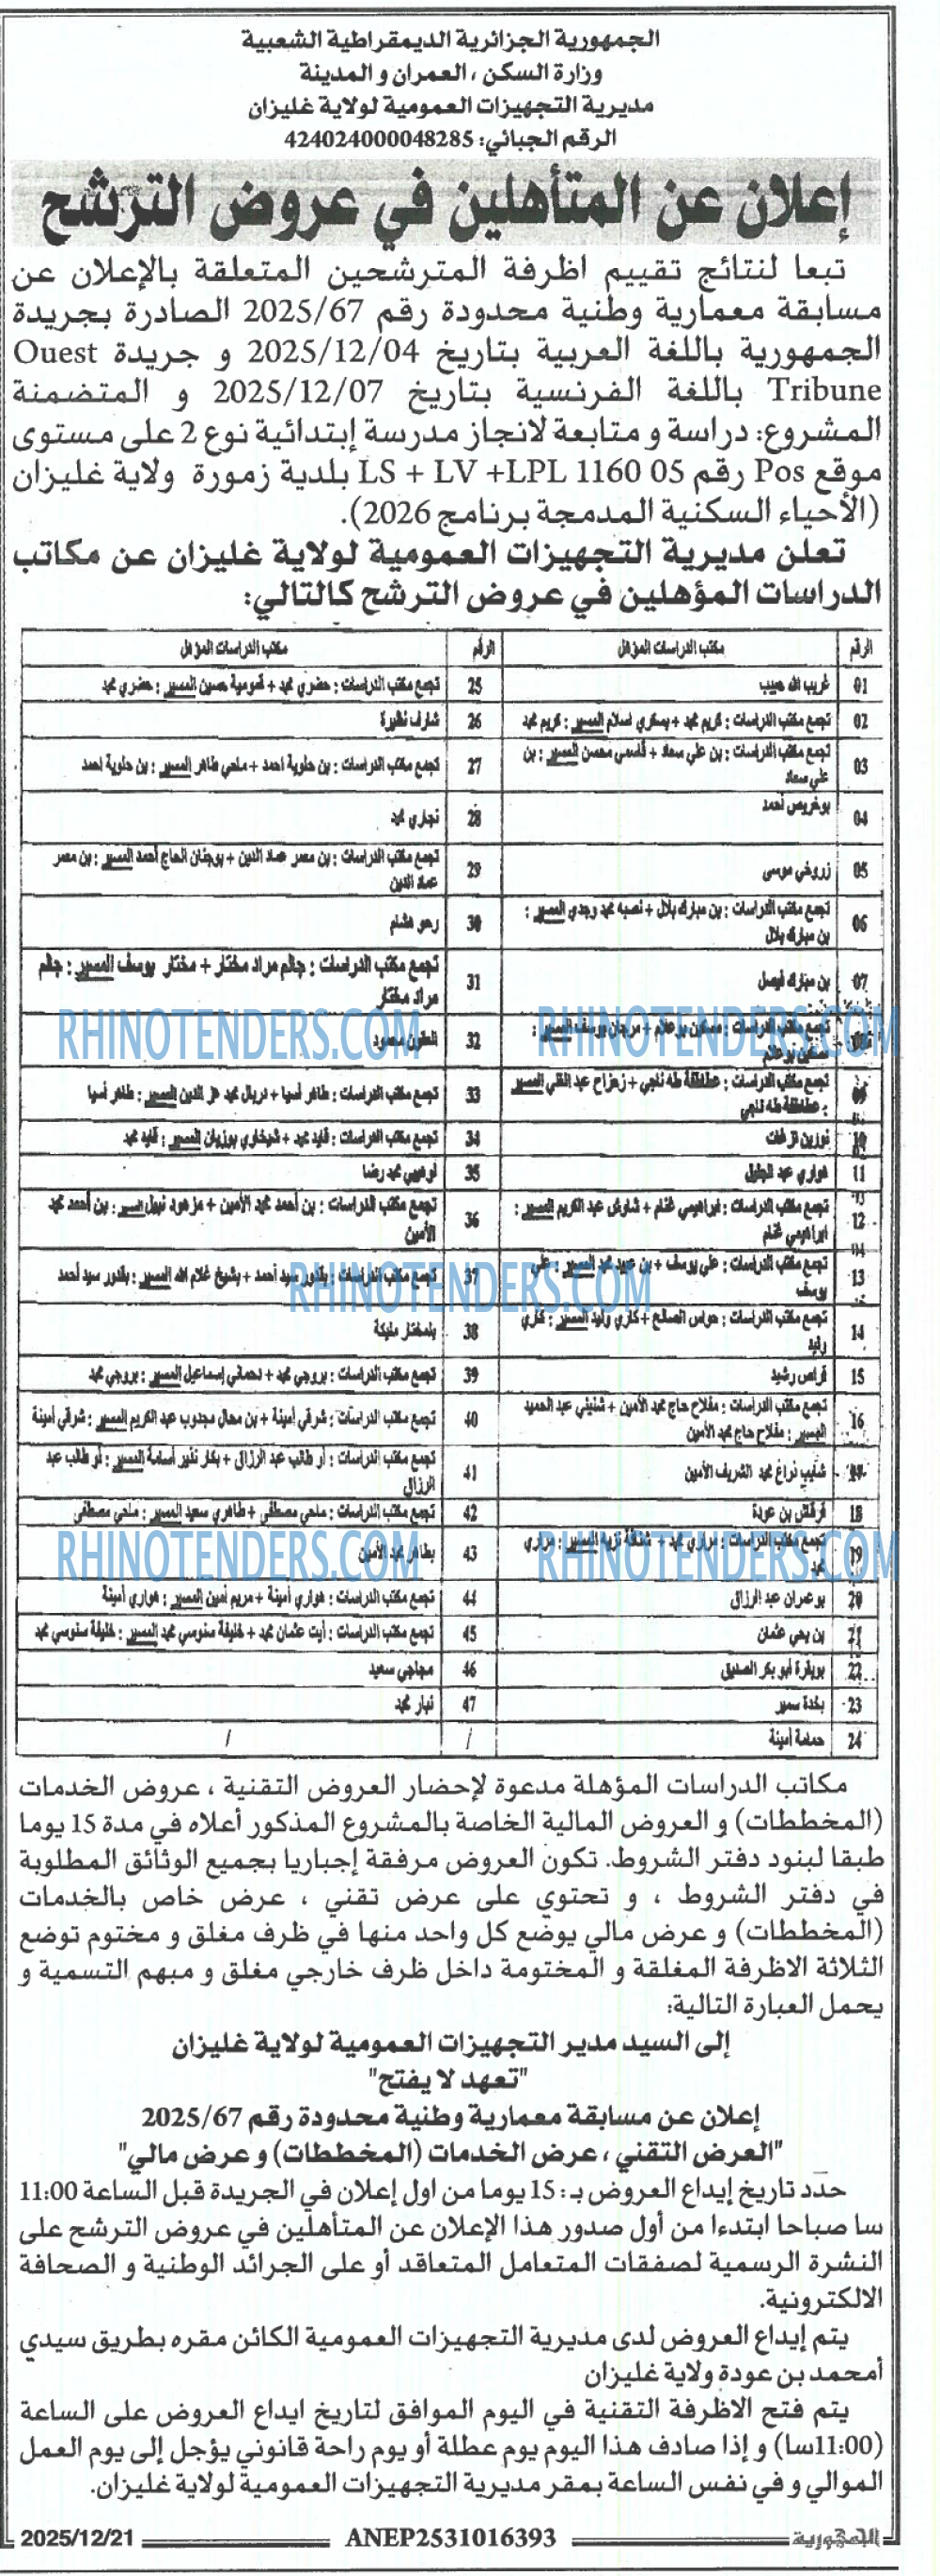 الجمهورية الجزائرية الديمقراطية الشعبية
وزارة السكن ، العمران و المدينة
مديرية التجهيزات العمومية لولاية غليزان
الرقم الجبائي: 424024000048285
إعلان عن المتأهلين في عروض الترشح
تبعا لنتائج تقييم اظرفة المترشحين المتعلقة بالإعلان عن
مسابقة معمارية وطنية محدودة رقم 2025/67 الصادرة بجريدة
الجمهورية باللغة العربية بتاريخ 2025/12/04 و جريدة Ouest
Tribune باللغة الفرنسية بتاريخ 2025/12/07 و المتضمنة
المشروع: دراسة و متابعة لانجاز مدرسة إبتدائية نوع 2 على مستوى
موقع Pos رقم 05 LS + LV +LPL 1160 بلدية زمورة ولاية غليزان
(الأحياء السكنية المدمجة برنامج 2026).
تعلن مديرية التجهيزات العمومية لولاية غليزان عن مكاتب
الدراسات المؤهلين في عروض الترشح كالتالي:
الرقم مكتب الدراسات المؤهل الرقم مكتب الدراسات المؤهل
01 غريب الله حبيب
25 تجمع مكتب الدراسات : حضري محمد + قمومية حسين المسير : حضري محمد
02 تجمع مكتب الدراسات : كريم محمد + يسكري اسلام المسير : كريم محمد
26 شارف نظيرة
03 تجمع مكتب الدراسات : بن علي سعاد + قاسمي محسن المسير : بن
علي سعاد
27 تجمع مكتب الدراسات : بن حلوية احمد + ملحي طاهر المسير : بن حلوية احمد
04 بوخريص أحمد
28 نجاري محمد
05 زروخي موسى
29 تجمع مكتب الدراسات : بن معمر عماد الدين + بوجنان الحاج أحمد المسير : بن معمر
عماد الدين
06 تجمع مكتب الدراسات : بن مبارك بلال + نصبه محمد وجدي المسير :
بن مبارك بلال
30 رحو هشام
07 بن مبارك فيصل
31 تجمع مكتب الدراسات : جالم مراد مختار + مختار يوسف المسير : جالم
مراد مختار
تجمع مكتب الدراسات : مسكين بوعلام + مرجان يوسف المسير :
مسكين بوعلام
32 مسعود
09 تجمع مكتب الدراسات : طه ناجي + عبد الغني المسير
: طه ناجي
33 تجمع مكتب الدراسات : طاهر أسيا + دربال محمد عز الدين المسير : طاهر أسيا
10 نورين فرحات
34 تجمع مكتب الدراسات : قايد محمد + شيخاوي بوزيان المسير : قايد محمد
11 هواري عبد الجليل
35 لوهيبي محمد رضا
12 تجمع مكتب الدراسات : ابراهيمي غنام + شاوش عبد الكريم المسير :
ابراهيمي غنام
36 تجمع مكتب الدراسات : بن أحمد محمد الأمين + مزهود نبيل المسير : بن أحمد محمد
الأمين
13 تجمع مكتب الدراسات : علي يوسف + بن عبيد محمد المسير : علي
يوسف
37 تجمع مكتب الدراسات : بقدور سيد أحمد + بشيخ غلام الله المسير : بقدور سيد أحمد
14 تجمع مكتب الدراسات : حواس الصالح + كاري وليد المسير : كاري
وليد
38 بلمختار مليكة
15 قراص رشيد
39 تجمع مكتب الدراسات : بروجي محمد + دحماني إسماعيل المسير : بروجي محمد
16 تجمع مكتب الدراسات : مفلاح حاج محمد الأمين + شنيني عبد الحميد
المسير : مفلاح حاج محمد الأمين
40 تجمع مكتب الدراسات : شرقي أمينة + بن محال مجدوب عبد الكريم المسير : شرقي أمينة
شايب ذراع محمد الشريف الأمين
41 تجمع مكتب الدراسات : أو طالب عبد الرزاق + بكار نذير أسامة المسير : أو طالب عبد
الرزاق
18 قرقش بن عودة
42 تجمع مكتب الدراسات : ملحي مصطفى + طاهري سعيد المسير : ملحي مصطفى
19 تجمع مكتب الدراسات : مراري محمد + نزيه المسير : مراري
محمد
43 بطاهر محمد الأمين
20 بوعمران عبد الرزاق
44 تجمع مكتب الدراسات : هواري أمينة + مريم أمين المسير : هواري أمينة
21 بن يحي عثمان
45 تجمع مكتب الدراسات : أيت عثمان محمد + خليفة سنوسي محمد المسير : خليفة سنوسي محمد
22 بوبقرة أبو بكر الصديق
46 مجاجي سعيد
23 بخدة سمير
47 نهار محمد
24 حمامة أمينة
/ /
RHINOTENDERS.COM RHINOTENDERS.COM
RHINOTENDERS.COM
RHINOTENDERS.COM RHINOTENDERS.COM
مكاتب الدراسات المؤهلة مدعوة لإحضار العروض التقنية ، عروض الخدمات
(المخططات) و العروض المالية الخاصة بالمشروع المذكور أعلاه في مدة 15 يوما
طبقا لبنود دفتر الشروط. تكون العروض مرفقة إجباريا بجميع الوثائق المطلوبة
في دفتر الشروط ، و تحتوي على عرض تقني ، عرض خاص بالخدمات
(المخططات) و عرض مالي يوضع كل واحد منها في ظرف مغلق و مختوم توضع
الثلاثة الاظرفة المغلقة و المختومة داخل ظرف خارجي مغلق و مبهم التسمية و
يحمل العبارة التالية:
إلى السيد مدير التجهيزات العمومية لولاية غليزان
"تعهد لا يفتح"
إعلان عن مسابقة معمارية وطنية محدودة رقم 2025/67
"العرض التقني ، عرض الخدمات (المخططات) و عرض مالي"
حدد تاريخ إيداع العروض بـ: 15 يوما من اول إعلان في الجريدة قبل الساعة 11:00
سا صباحا ابتدءا من أول صدور هذا الإعلان عن المتأهلين في عروض الترشح على
النشرة الرسمية لصفقات المتعامل المتعاقد أو على الجرائد الوطنية و الصحافة
الالكترونية.
يتم إيداع العروض لدى مديرية التجهيزات العمومية الكائن مقره بطريق سيدي
أمحمد بن عودة ولاية غليزان
يتم فتح الاظرفة التقنية في اليوم الموافق لتاريخ ايداع العروض على الساعة
(11:00سا) و إذا صادف هذا اليوم يوم عطلة أو يوم راحة قانوني يؤجل إلى يوم العمل
الموالي و في نفس الساعة بمقر مديرية التجهيزات العمومية لولاية غليزان.
الجمهورية ANEP2531016393 2025/12/21